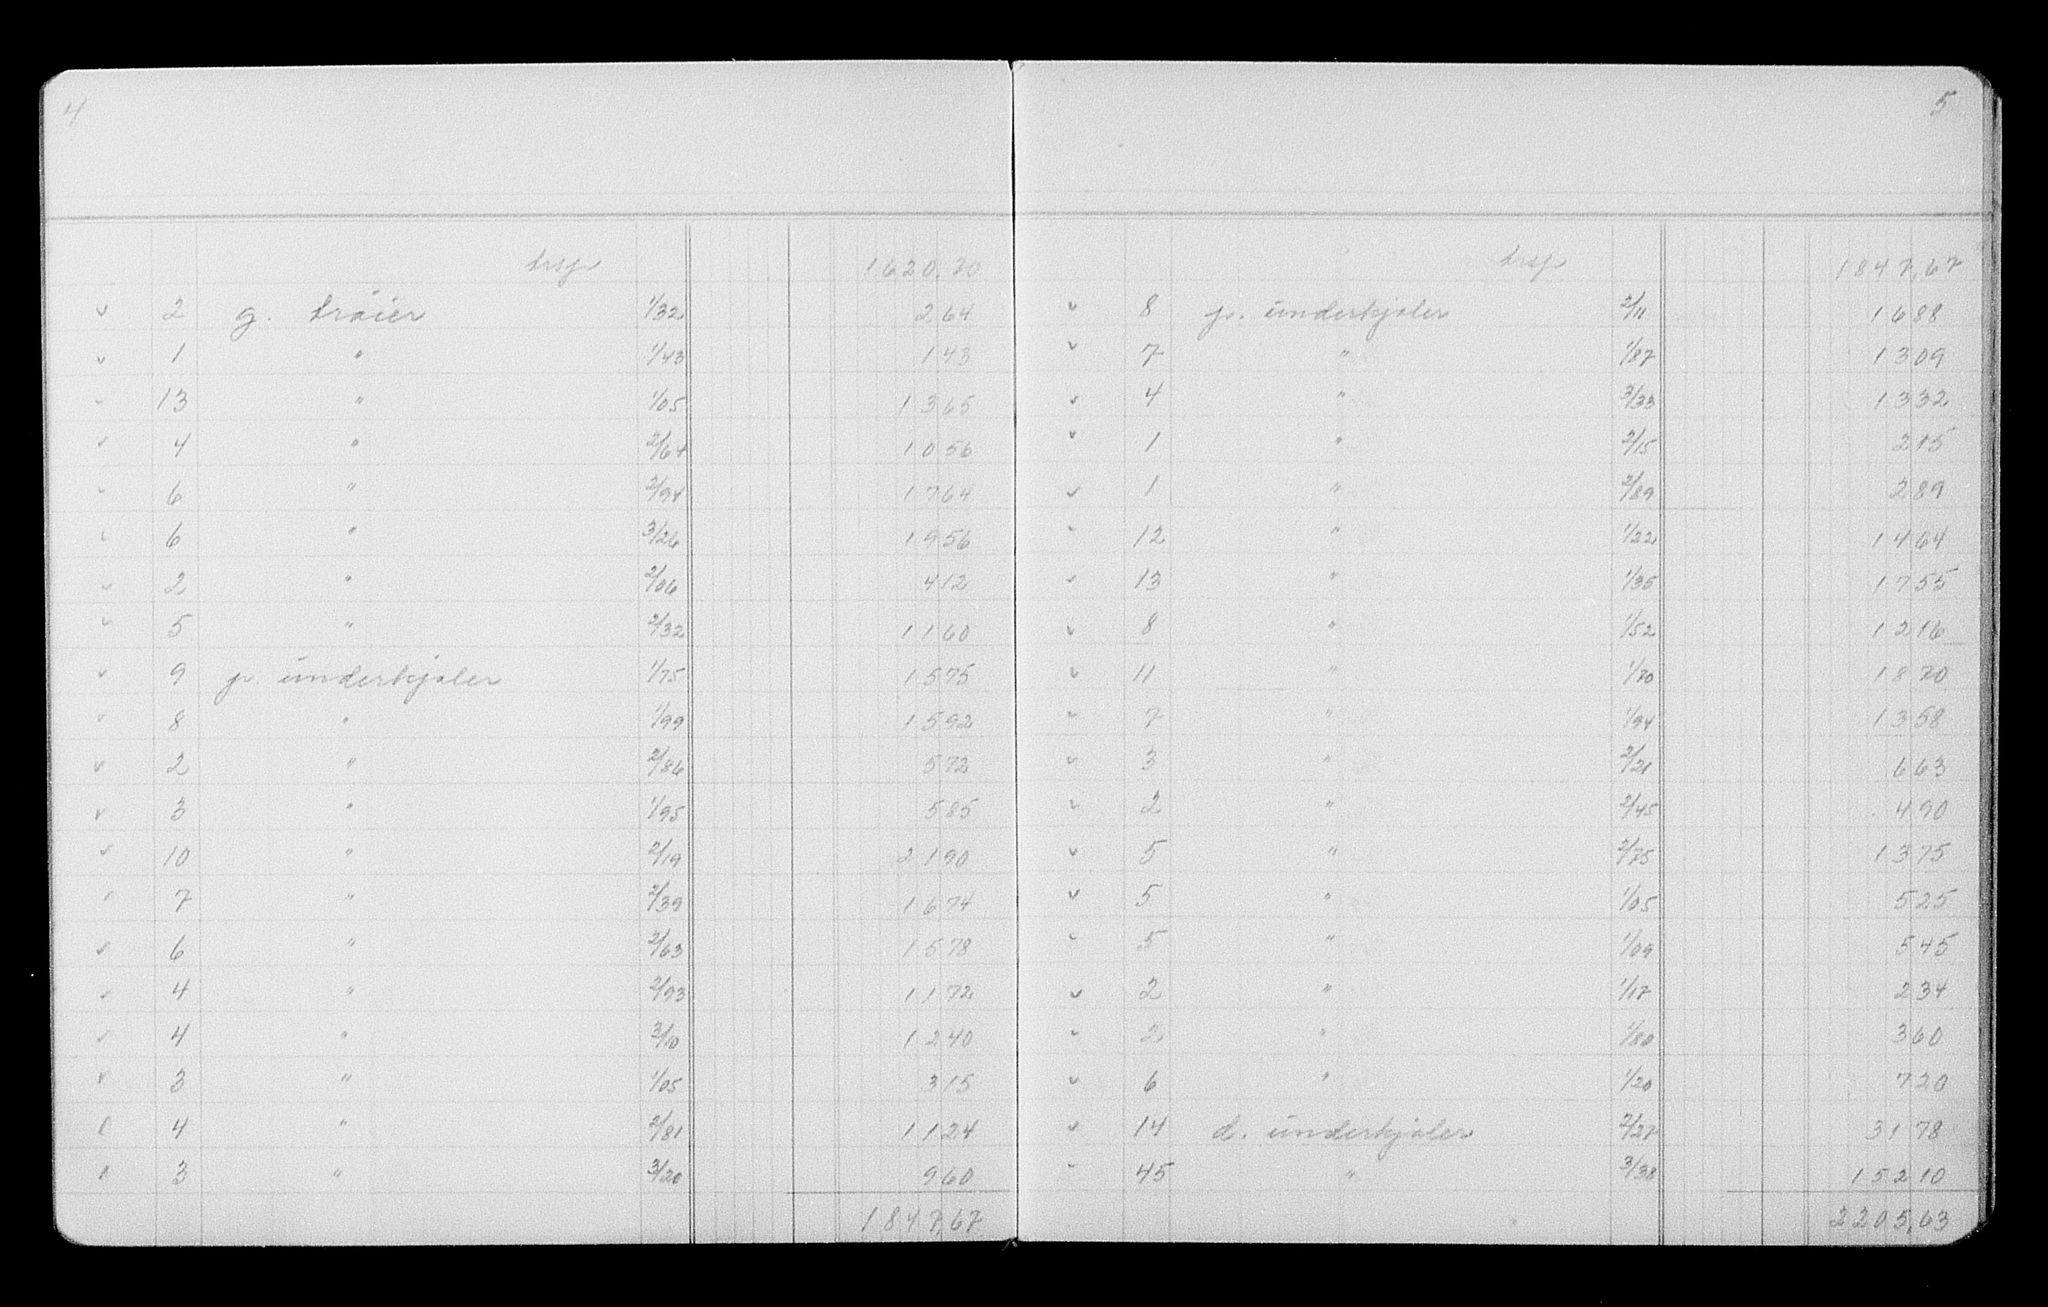 4
trsp 1620,70
v 2 g. trøier 1/32 264
v 1 " 1/43 143
v 13 " 1/05 1365
v 4 " 2/64 1056
v 6 " 2/94 1764
v 6 " 3/26 1956
v 2 " 2/06 412
v 5 " 2/32 1160
v 9 p. underkjoler 1/75 1575
v 8 " 1/99 1592
v 2 " 2/86 572
v 3 " 1/95 585
v 10 " 2/19 2190
v 7 " 2/39 1674
v 6 " 2/63 1578
v 4 " 2/93 1172
v 4 " 3/10 1240
v 3 " 1/05 315
v 4 " 2/81 1124
v 3 " 3/20 960
1847,67
5
trsp 1847,67
v 8 p. underkjoler 2/11 1688
v 7 " 1/87 1309
v 4 " 3/33 1332
v 1 " 2/15 215
v 1 " 2/89 289
v 12 " 1/22 1464
v 13 " 1/35 1755
v 8 " 1/52 1216
v 11 " 1/70 1870
v 7 " 1/94 1358
v 3 " 2/21 663
v 2 " 2/45 490
v 5 " 2/75 1375
v 5 " 1/05 525
v 5 " 1/09 545
v 2 " 1/17 234
v 2 " 1/80 360
v 6 " 1/20 720
v 14 d. underkjoler 2/27 3178
v 45 " 3/38 15210
2205,63